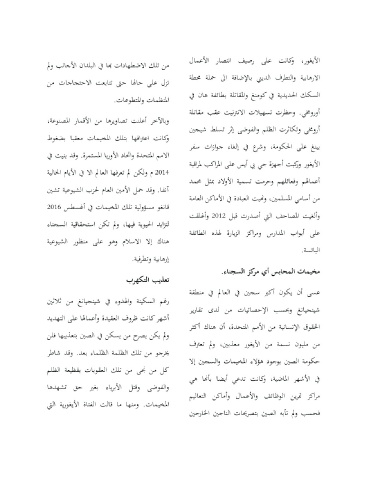 الأيغور، وكانت على رصيف انتصار الأعمال
الارهابية والتطرف الديني بالإضافة الى حملة محطة
السكك الحديدية في كومنغ والمقاتلة بطائفة هان في
أورومجي. وحظرت تسهيلات الانترنيت عقب مقاتلة
أرومجي وتكاثرت الظلم والفوضى إثر تسلط شيجين
بينغ على الحكومة، وشرع في إلغاء جوازات سفر
الأيغور وركبت أجهزة جي بي أيس على المراكب لمراقبة
أعمالهم وفعاليتهم وحرمت تسمية الأولاد بمثل محمد
من أسامي المسلمين، ونهيت العبادة في الأماكن العامة
وألغيت المصاحف التي أصدرت قبل 2012 وأغلقت
على أبواب المدارس ومراكز الزيارة لهذه الطائفة
البائسة.
مخيمات المحابس أي مركز السجناء.
عسى أن يكون أكبر سجين في العالم في منطقة
شينجيانغ وبحسب الإحصائيات من لدى تقارير
الحقوق الإنسانية من الأمم المتحدة، أن هناك أكثر
من مليون نسمة من الأيغور معلبين، ولم تعترف
حكومة الصين بوجود هؤلاء المخيمات والسجين إلا
في الأشهر الماضية، وكانت تدعي أيضا بأنها هي
مراكز تمرين الوظائف والأعمال وأماكن التعاليم
فحسب ولم تأبه الصين بتصريحات الناجين الخارجين
من تلك الاضطهادات بما في البلدان الأجانب ولم
تزل على حالها حتى تتابعت الاحتجاجات من
المنظمات والمتطوعات.
وبالآخر أعلنت تصاويرها من الأقمار المصنوعة،
وكانت اعترافها بتلك المخيمات معطيا بضغوط
الاسم المتحدة واتحاد الأوربا المستمرة. وقد بنيت في
2014 م ولكن لم تعرفها العالم الا في الأيام الحالية
أنفا. وقد حمل الأمين العام لحزب الشيوعية تشين
قانغو مسؤولية تلك المخيمات في أغسطس 2016
لتزايد الحيوية فيها، ولم تكن استحقاقية السجناء
هناك إلا الاسلام وهو على منظور الشيوعية
إرهابية وتطرفية.
تعذيب التكهرب
رغم السكينة والهدوء في شينجيانغ من ثلاثين
أشهر كانت ظروف العقيدة وأعمالها على التهديد
ولم يكن يصرح من يسكن في الصين بتعذيبها فلن
يخرجو من تلك الظلمة الظلماء بعد. وقد شاطر
كل من نجى من تلك العقوبات بفظيعة الظلم
والفوضى وقتل الأبرياء بغير حق تشهدها
المخيمات. ومنها ما قالت الفتاة الأيغورية التي